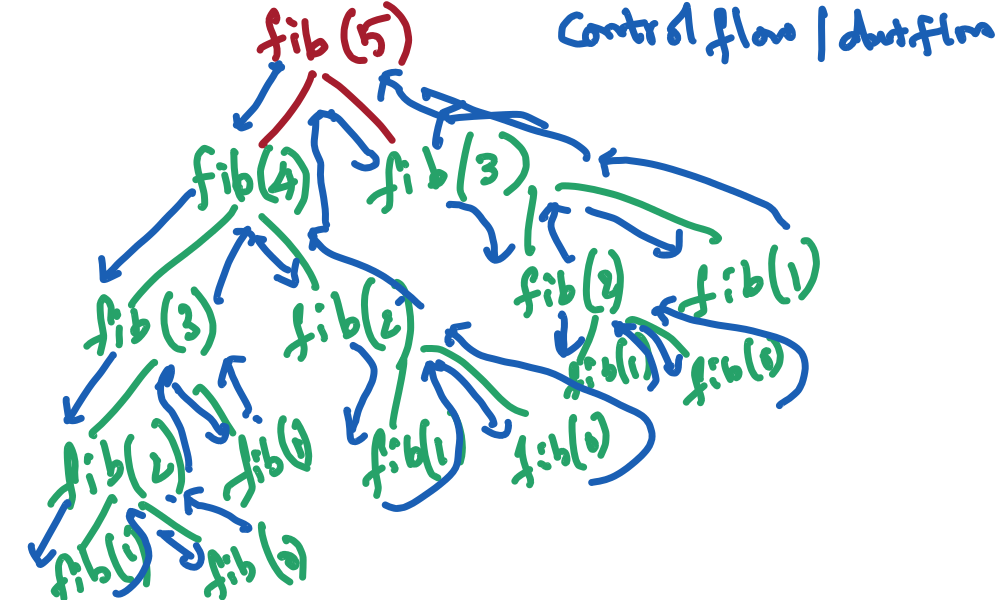 fib(5)
control flow / dataflow
fib(4) fib(3)
fib(3) fib(2) fib(2) fib(1)
fib(1) fib(0)
fib(2) fib(1) fib(1) fib(0)
fib(1) fib(0)